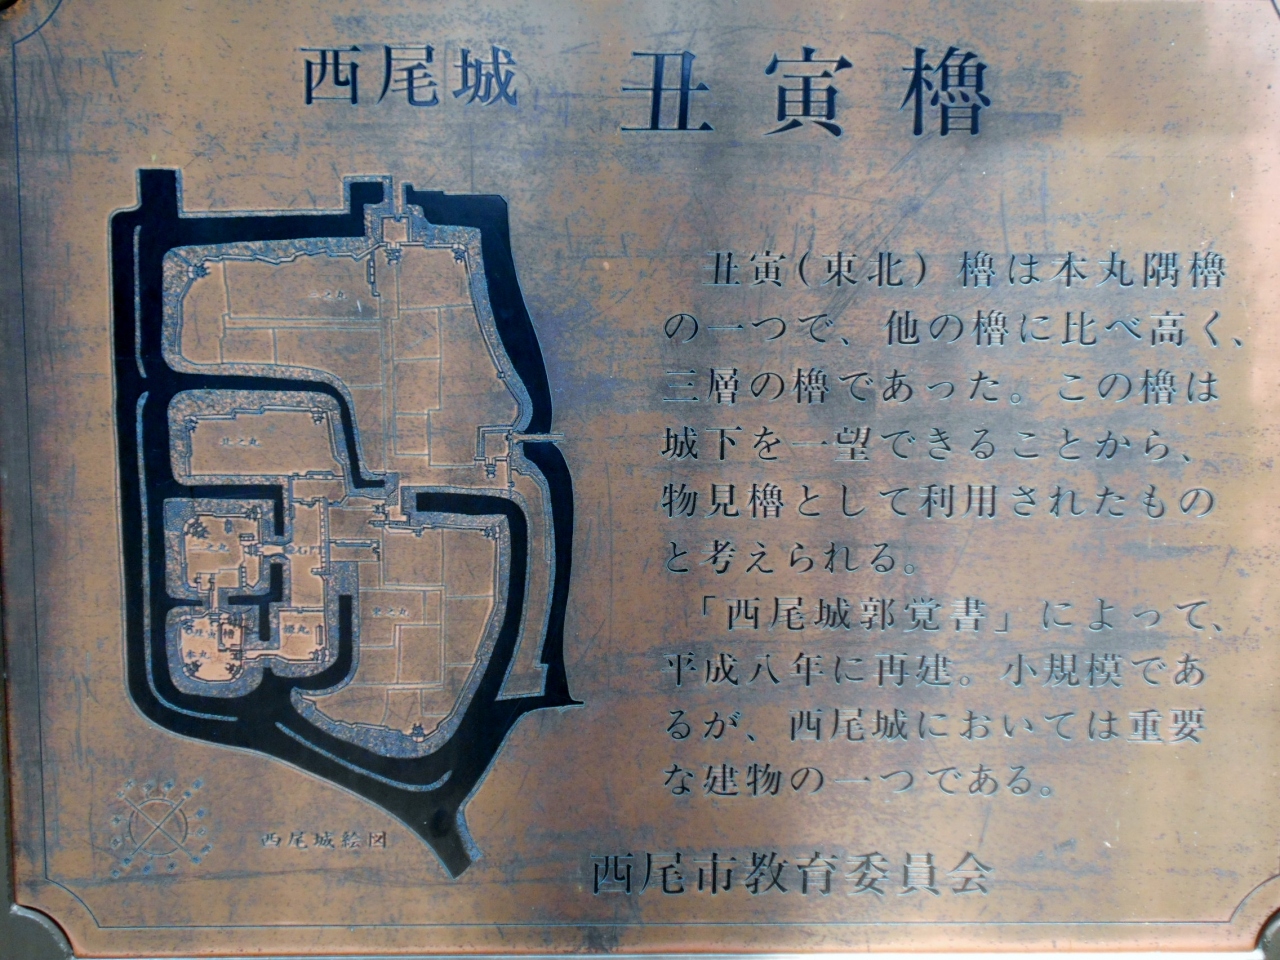 西尾城 丑寅櫓
丑寅(東北)櫓は本丸隅櫓
の一つで、他の櫓に比べ高く、
三層の櫓であった。この櫓は
城下を一望できることから、
物見櫓として利用されたもの
と考えられる。
「西尾城郭覚書」によって、
平成八年に再建。小規模であ
るが、西尾城においては重要
な建物の一つである。
西尾市教育委員会
二之丸
北之丸
東之丸
姫丸
本丸
西尾城絵図